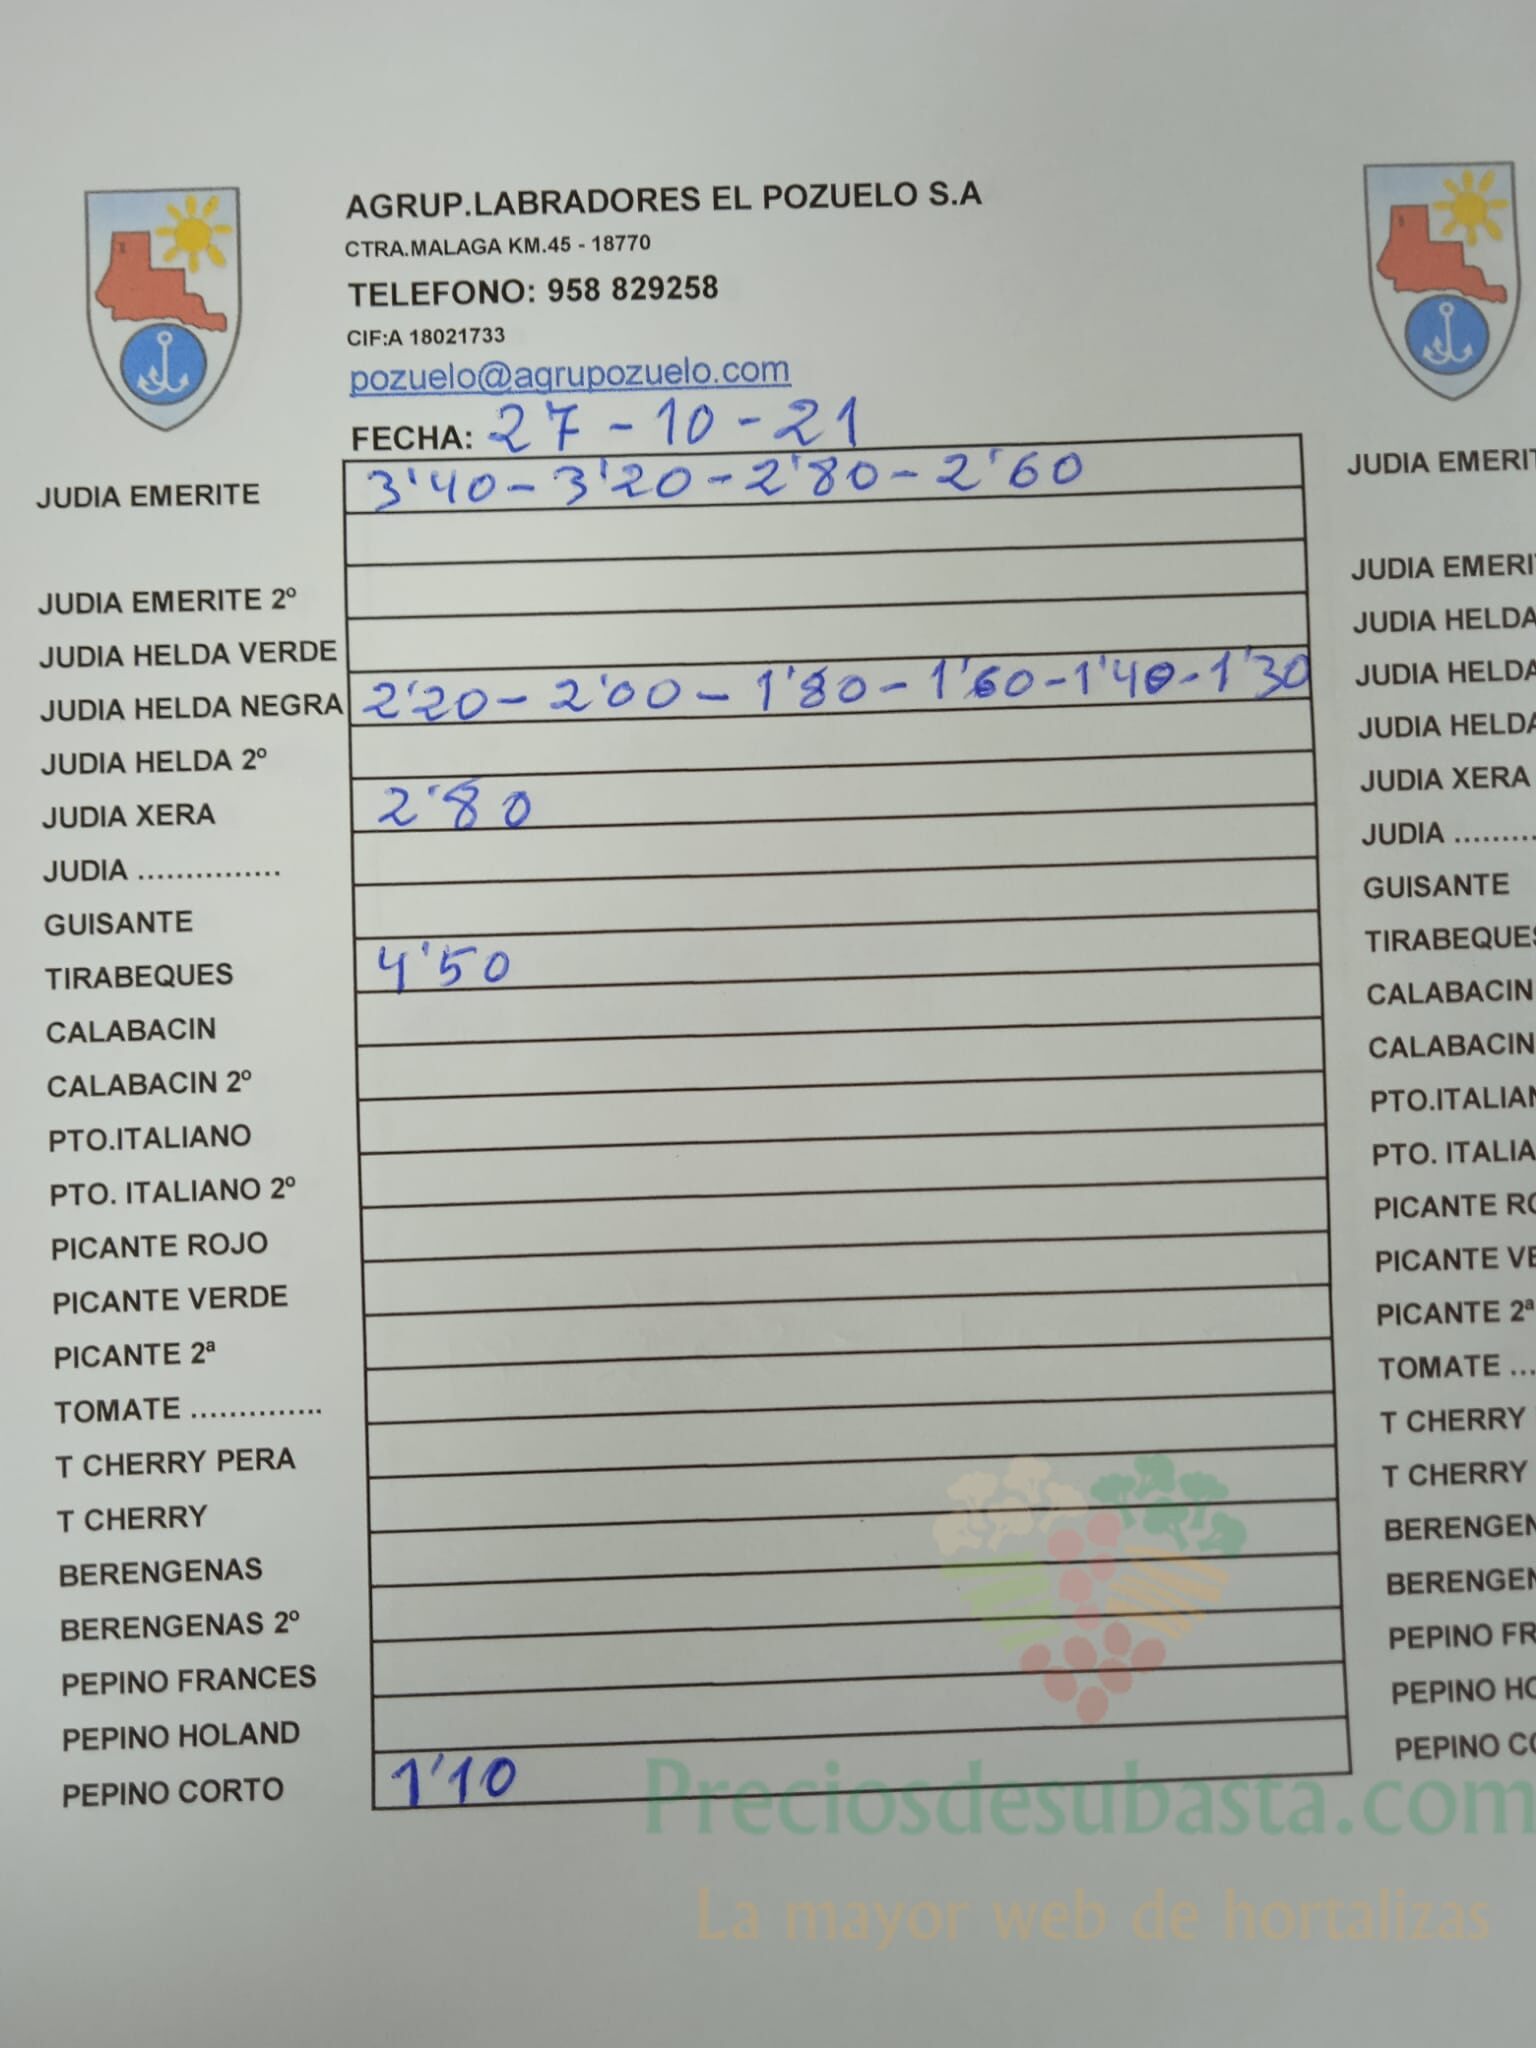 AGRUP.LABRADORES EL POZUELO S.A
CTRA.MALAGA KM.45 - 18770
TELEFONO: 958 829258
CIF:A 18021733
pozuelo@agrupozuelo.com
FECHA: 27-10-21
JUDIA EMERITE 3'40-3'20-2'80-2'60
JUDIA EMERITE 2º
JUDIA HELDA VERDE
JUDIA HELDA NEGRA 2'20-2'00-1'80-1'60-1'40-1'30
JUDIA HELDA 2º
JUDIA XERA 2'80
JUDIA ...............
GUISANTE
TIRABEQUES 4'50
CALABACIN
CALABACIN 2º
PTO.ITALIANO
PTO. ITALIANO 2º
PICANTE ROJO
PICANTE VERDE
PICANTE 2ª
TOMATE ..............
T CHERRY PERA
T CHERRY
BERENGENAS
BERENGENAS 2º
PEPINO FRANCES
PEPINO HOLAND
PEPINO CORTO 1'10
JUDIA EMERIT
JUDIA EMERI
JUDIA HELDA
JUDIA HELDA
JUDIA HELDA
JUDIA XERA
JUDIA .........
GUISANTE
TIRABEQUES
CALABACIN
CALABACIN
PTO.ITALIAN
PTO. ITALIA
PICANTE RO
PICANTE VE
PICANTE 2ª
TOMATE ...
T CHERRY
T CHERRY
BERENGEN
BERENGEN
PEPINO FR
PEPINO HO
PEPINO CO
Preciosdesubasta.com
La mayor web de hortalizas